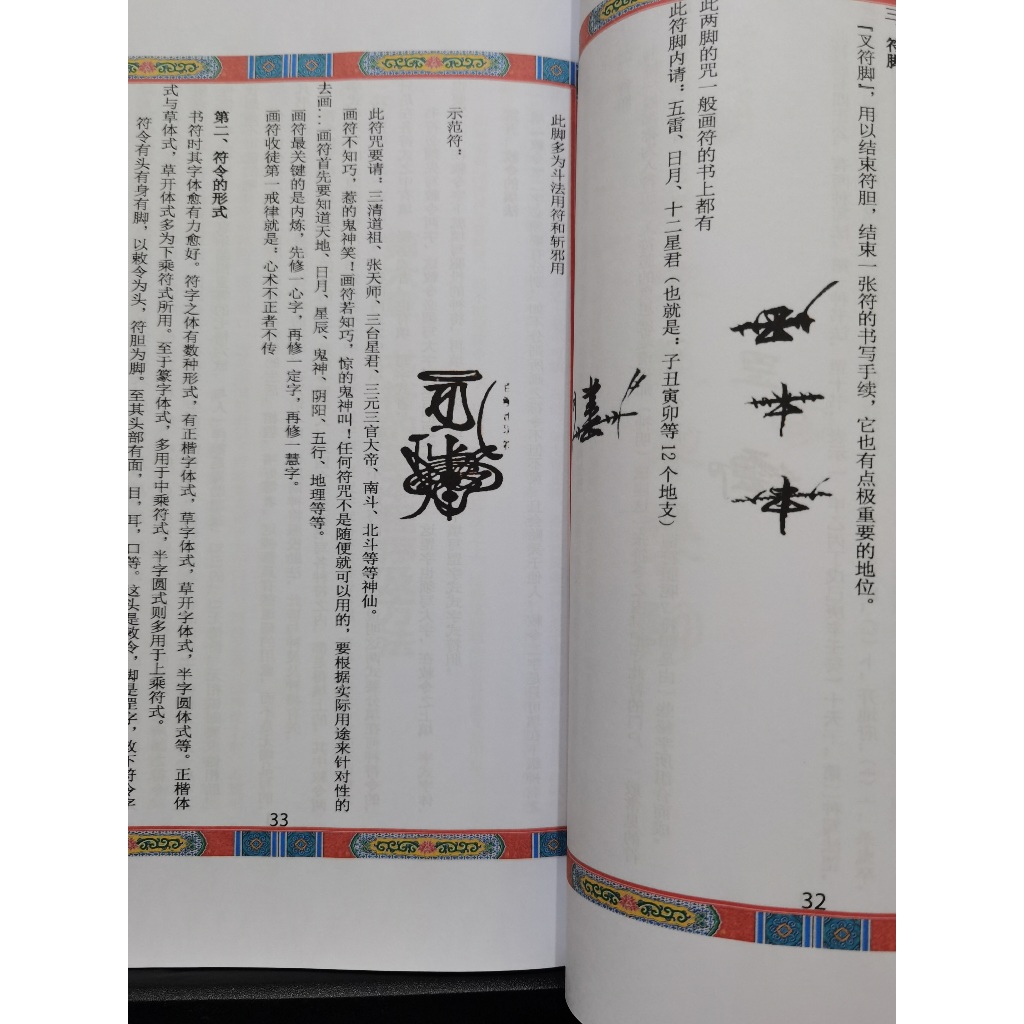 三、符脚
「叉符脚」，用以结束符胆，结束一张符的书写手续，它也有点极重要的地位。
此两脚的咒一般画符的书上都有
此符脚内请：五雷、日月、十二星君（也就是：子丑寅卯等12个地支）
32
此脚多为斗法用符和斩邪用
示范符：
此符咒要请：三清道祖、张天师、三台星君、三元三官大帝、南斗、北斗等等神仙。
画符不知巧，惹的鬼神笑！画符若知巧，惊的鬼神叫！任何符咒不是随便就可以用的，要根据实际用途来针对性的
去画…画符首先要知道天地、日月、星辰、鬼神、阴阳、五行、地理等等。
画符最关键的是内炼，先修一心字，再修一定字，再修一慧字。
画符收徒第一戒律就是：心术不正者不传
第二、符令的形式
书符时其字体愈有力愈好。符字之体有数种形式，有正楷字体式，草字体式，草开字体式，半字圆体式等。正楷体
式与草体式，草开体式多为下乘符式所用。至于篆字体式，多用于中乘符式，半字圆式则多用于上乘符式。
符令有头有身有脚，以敕令为头，符胆为脚。至其头部有面，目，耳，口等。这头是敕令，脚是罡字，故下符令字
33